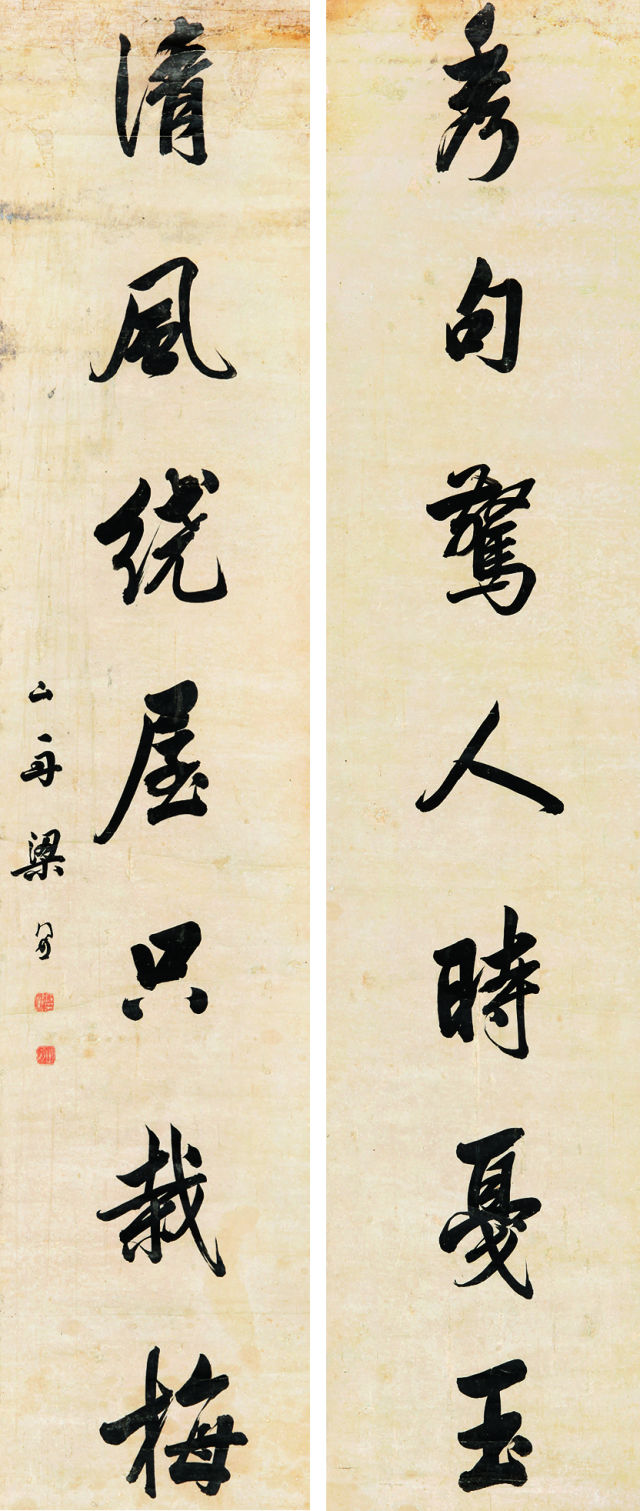 秀句驚人時戛玉
清風繞屋只栽梅
山舟梁同書